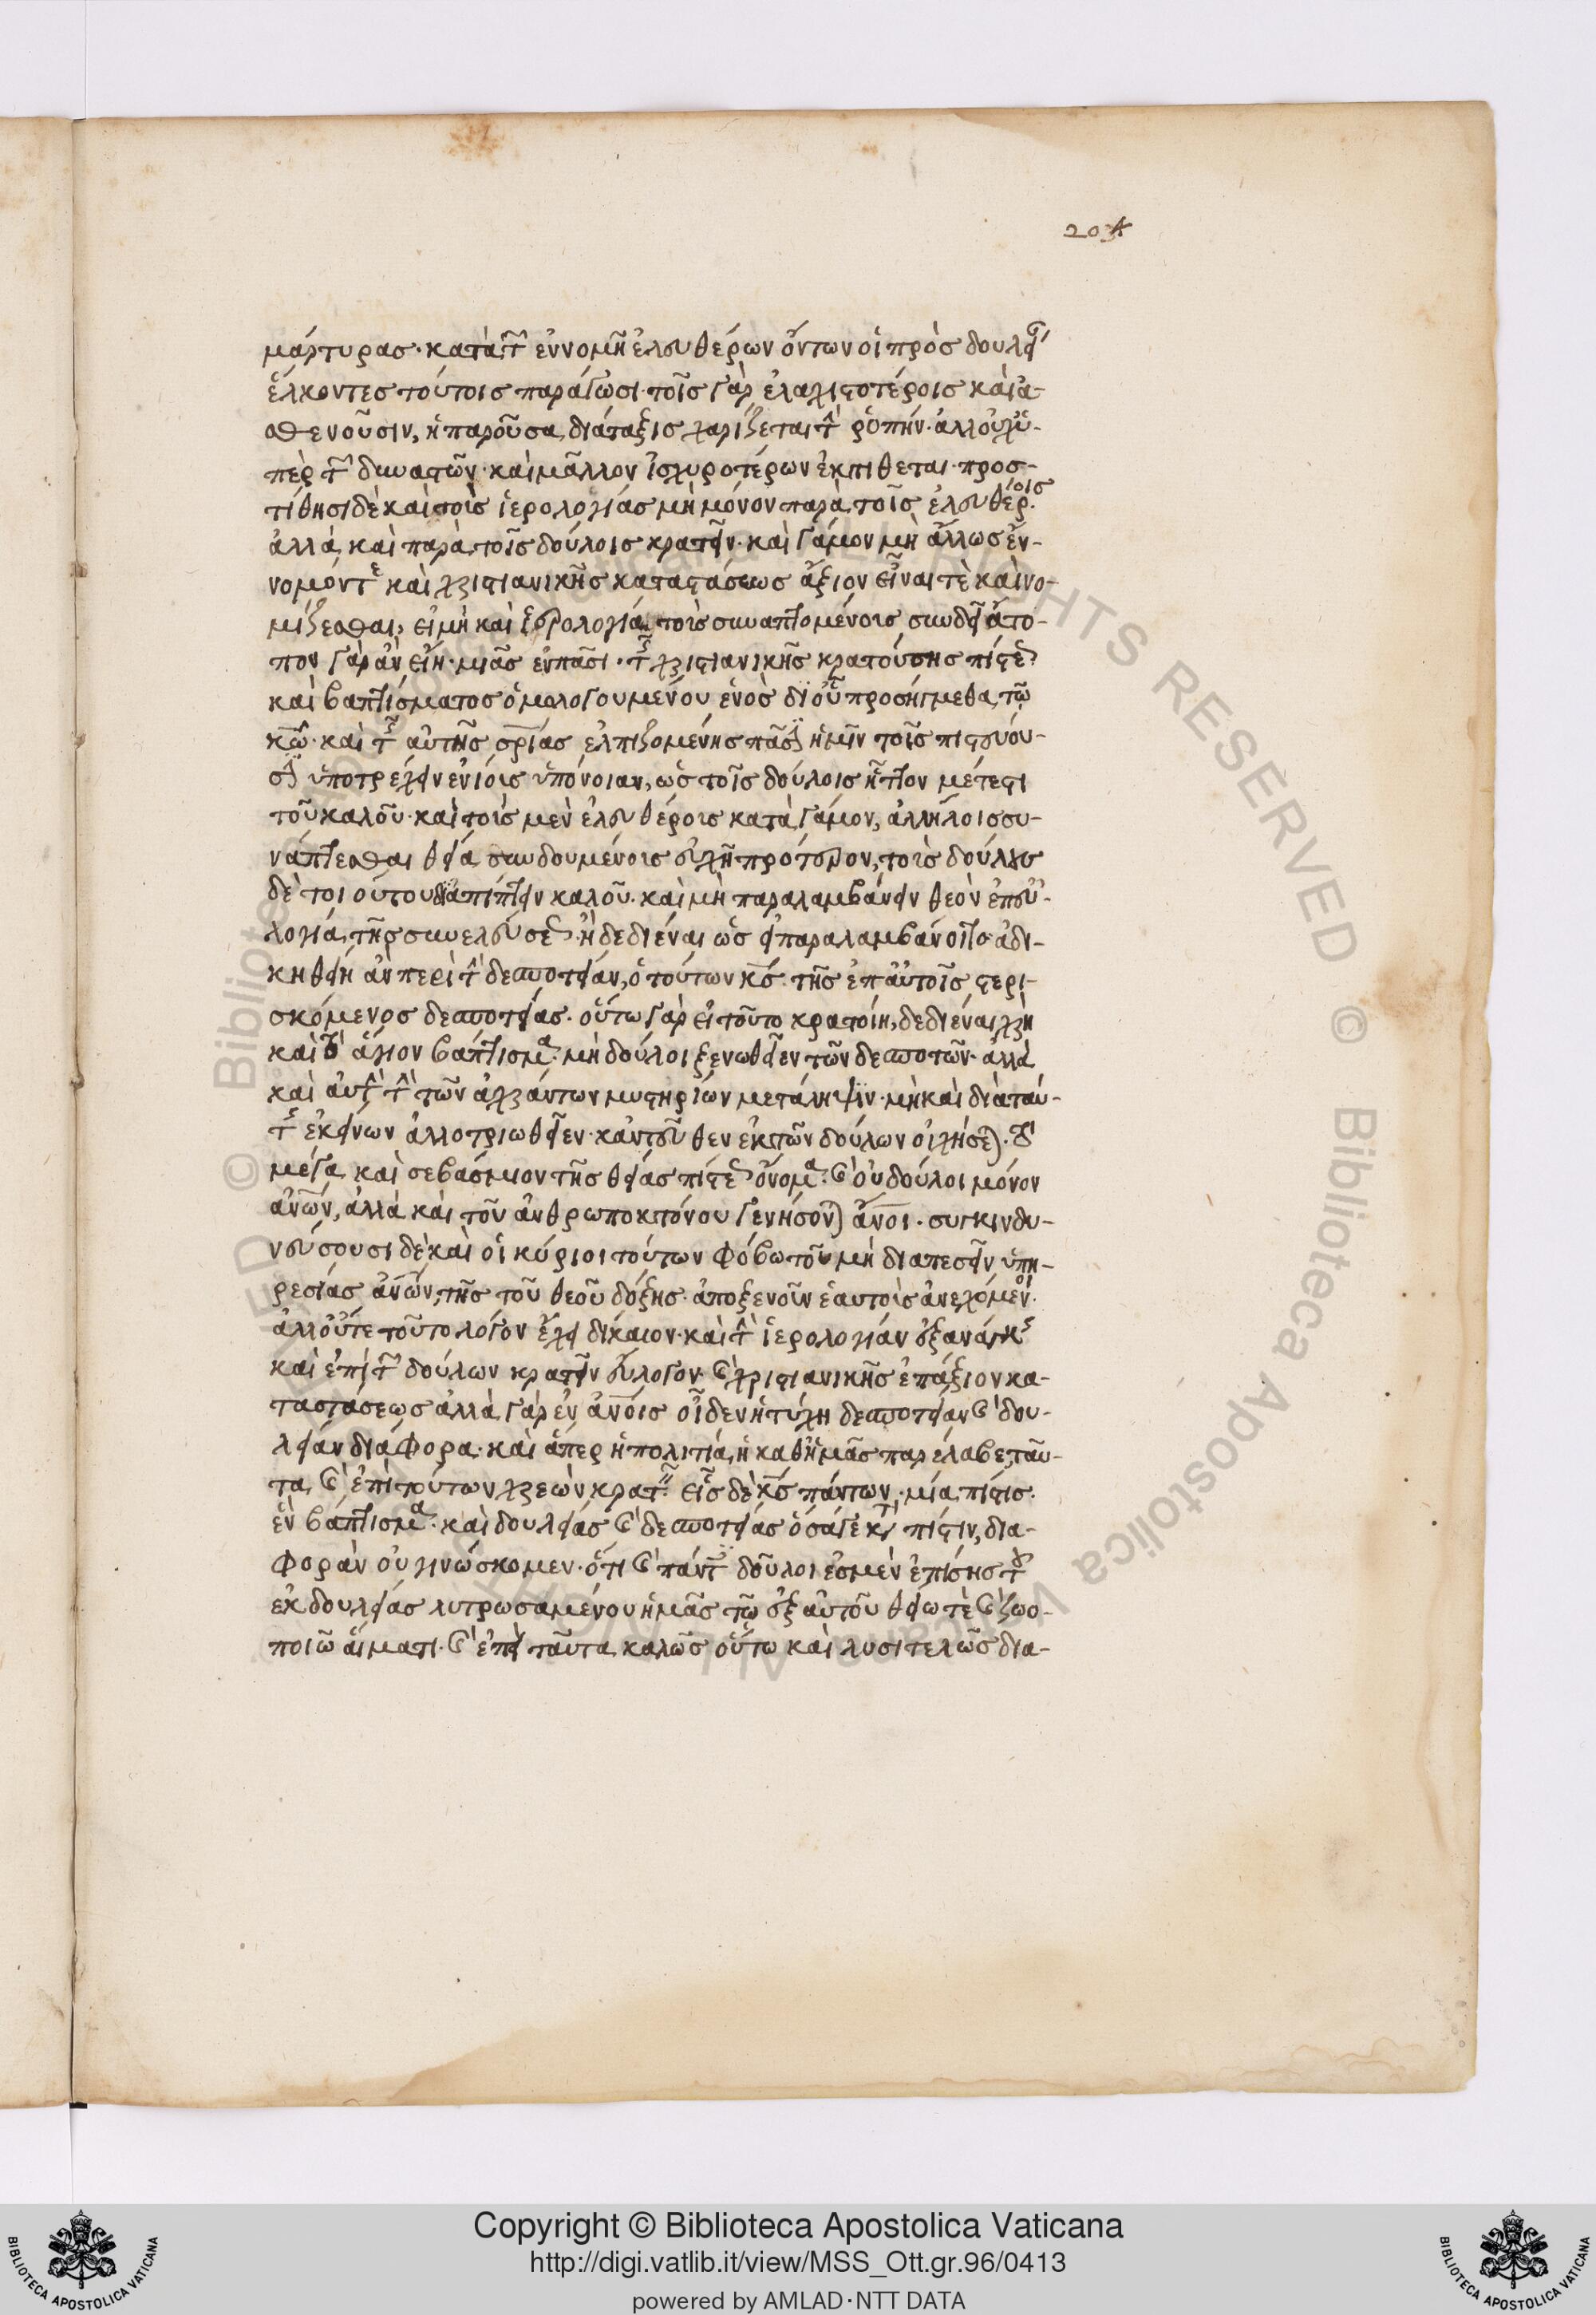 204
μάρτυρας· κατὰ τ̑ ἐννομῆ ἐλευθέρων ὄντων οἱ πρὸς δουλεί
ἕλκοντες τούτοις παράγωσι· τοῖς γὰρ ἐλαχιστοτέροις καὶ ἀ-
σθενοῦσιν, ἡ παροῦσα διάταξις χαρίζεται τ̑ ῥοπήν· ἀλλ' οὐχ ὑ-
πὲρ τ̑ δυνατῶν· καὶ μᾶλλον ἰσχυροτέρων ἐκτιθεται· προσ-
τίθησι δὲ καὶ τοὶς ἱερολογίας μὴ μόνον παρὰ τοῖς ἐλευθέροις
ἀλλὰ καὶ παρὰ τοῖς δούλοις κρατεῖν· καὶ γάμον μὴ ἄλλως ἔν-
νομόν τε καὶ χριστιανικῆς καταστάσεως ἄξιον εἶναι τὲ καὶ νο-
μίζεσθαι, εἰ μὴ καὶ ἱερολογία τοὶς συναπτομένοις συνδεῖ ἄτο-
πον γὰρ ἂν εἴη· μιᾶς ἐν πᾶσι· τ̑ χριστιανικῆς κρατούσης πίστε
καὶ βαπτίσματος ὁμολογουμένου ἑνὸς δι' οὗ προσήγμεθα τῶ
κω̄· καὶ τ̑ αὐτῆς σρ̄ίας ἐλπιζομένης πᾶσιν ἡμῖν τοῖς πιστεύου-
σιν ὑποτρέχειν ἐνίοις ὑπόνοιαν, ὡς τοῖς δούλοις ἧττον μέτεστι
τοῦ καλοῦ· καὶ τοὶς μὲν ἐλευθέροις κατὰ γάμον, ἀλλήλοις συ-
νάπτεσθαι θεία συνδουμένοις εὐχῆ πρότερον, τοὶς δούλοις
δὲ τοι οὕτου διαπίπτειν καλοῦ· καὶ μὴ παραλαμβάνειν θεὸν ἐπ' εὐ-
λογία τῆς συνελεύσε· ἢ δεδιέναι ὡς εἰ παραλαμβάνοιτο ἀδι-
κηθείη ἂν περὶ τ̑ δεσποτείαν, ὁ τούτων κς̄· τῆς ἐπ' αὐτοῖς στερι-
σκόμενος δεσποτείας· οὕτω γὰρ εἰ τοῦτο κρατοίη, δεδιέναι χρὴ
καὶ τὸ ἅγιον βάπτισμα· μὴ δούλοι ξενωθεῖεν τῶν δεσποτῶν· ἀλλὰ
καὶ αὐτ τ̑ τῶν ἀχράντων μυστηρίων μετάληψιν· μὴ καὶ διὰ ταύ-
τ ἐκείνων ἀλλοτριωθεῖεν· κἀντεῦθεν ἐκ τῶν δούλων οἰχήσεται· τὸ
μέγα καὶ σεβάσμιον τῆς θείας πίστε ὄνομα· καὶ οὐ δούλοι μόνον
ἀνω̄ν, ἀλλὰ καὶ τοῦ ἀνθρωποκτόνου γενήσονται ἄνοι· συγκινδυ-
νεύσουσι δὲ καὶ οἱ κύριοι τούτων φόβω τοῦ μὴ διαπεσεῖν ὑπη-
ρεσίας ἀνω̄ν, τῆς τοῦ θεοῦ δόξης ἀποξενοῦν ἑαυτοὶς ἀνεχόμενοι·
ἀλλ' οὔτε τοῦτο λόγον ἔχει δίκαιον· καὶ τ̑ ἱερολογίαν ἐξ ανάγκης
καὶ ἐπὶ τ̑ δούλων κρατεῖν εὔλογον· καὶ χριστιανικῆς ἐπάξιον κα-
ταστάσεως ἀλλὰ γὰρ ἐν ἀνοις οἶδεν ἡ τύχη δεσποτείαν καὶ δου-
λείαν διάφορα· καὶ ἅπερ ἡ πολιτία ἡ καθ' ἡμᾶς παρέλαβε, ταῦ-
τα καὶ ἐπὶ τούτων χρεὼν κρατ. εἷς δὲ κς̄ πάντων· μία πίστις·
ἓν βάπτισμα· καὶ δουλείας καὶ δεσποτείας ὁσάγε κατὰ πίστιν, δια-
φορὰν οὐ γινώσκομεν· ὅτι καὶ πάντ δοῦλοι ἐσμὲν ἐπίσης τοῦ
ἐκ δουλείας λυτρωσαμένου ἡμᾶς τῶ ἐξ αὐτοῦ θείω τὲ καὶ ζωο-
ποιῶ αἵματι· καὶ ἐπεὶ ταῦτα καλῶς οὕτω καὶ λυσιτελῶς δια-
Copyright © Biblioteca Apostolica Vaticana
http://digi.vatlib.it/view/MSS_Ott.gr.96/0413
powered by AMLAD·NTT DATA
BIBLIOTECA APOSTOLICA VATICANA
BIBLIOTECA APOSTOLICA VATICANA